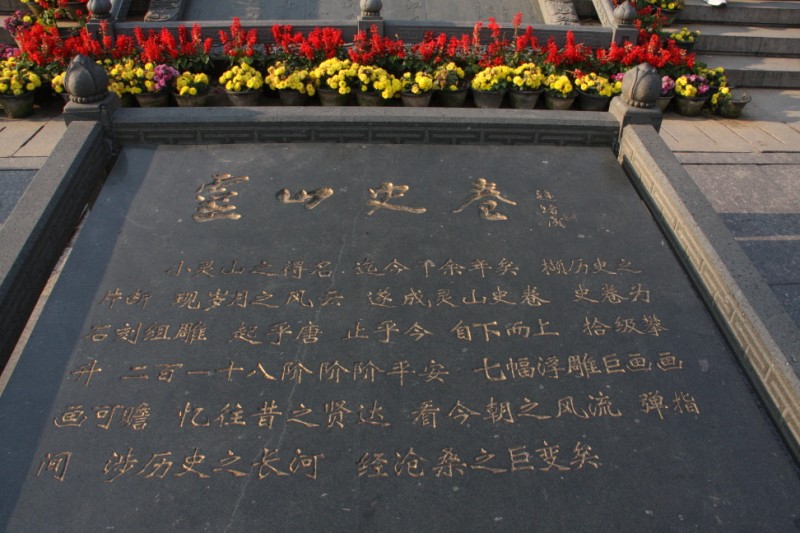 靈山史卷
小灵山之得名 迄今千余年矣 撷历史之
片断 现岁月之风云 遂成灵山史卷 史卷为
石刻组雕 起乎唐 止乎今 自下而上 拾级攀
升 二百一十八阶阶阶平安 七幅浮雕巨画画
画可瞻 忆往昔之贤达 看今朝之风流 弹指
间 涉历史之长河 经沧桑之巨变矣